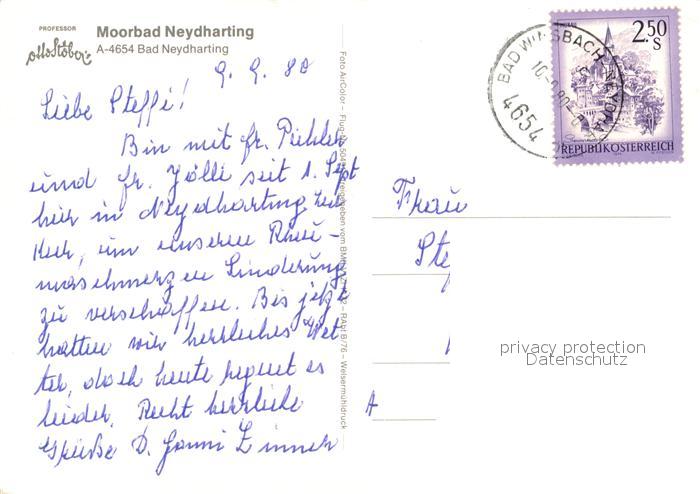 PROFESSOR
Otto Stöber's
Moorbad Neydharting
A-4654 Bad Neydharting
9. 9. 80
Liebe Steffi!
Bin mit Fr. Pichler
und Fr. Jölli seit 1. Sept
hier in Neydharting zur
Kur, um unseren Rheu-
maschmerzen Linderung
zu verschaffen. Bis jetzt
hatten wir herrliches Wet-
ter, doch heute regnet es
leider. Recht herzliche
Grüße D. Zimmer
Foto AirColor – Flug
freigegeben vom BM
RAbt B/76 – Welsermühldruck
BAD WIMSBACH-NEYDHARTING
4654
2.50
S
REPUBLIK ÖSTERREICH
Frau
Ste
privacy protection
Datenschutz
A